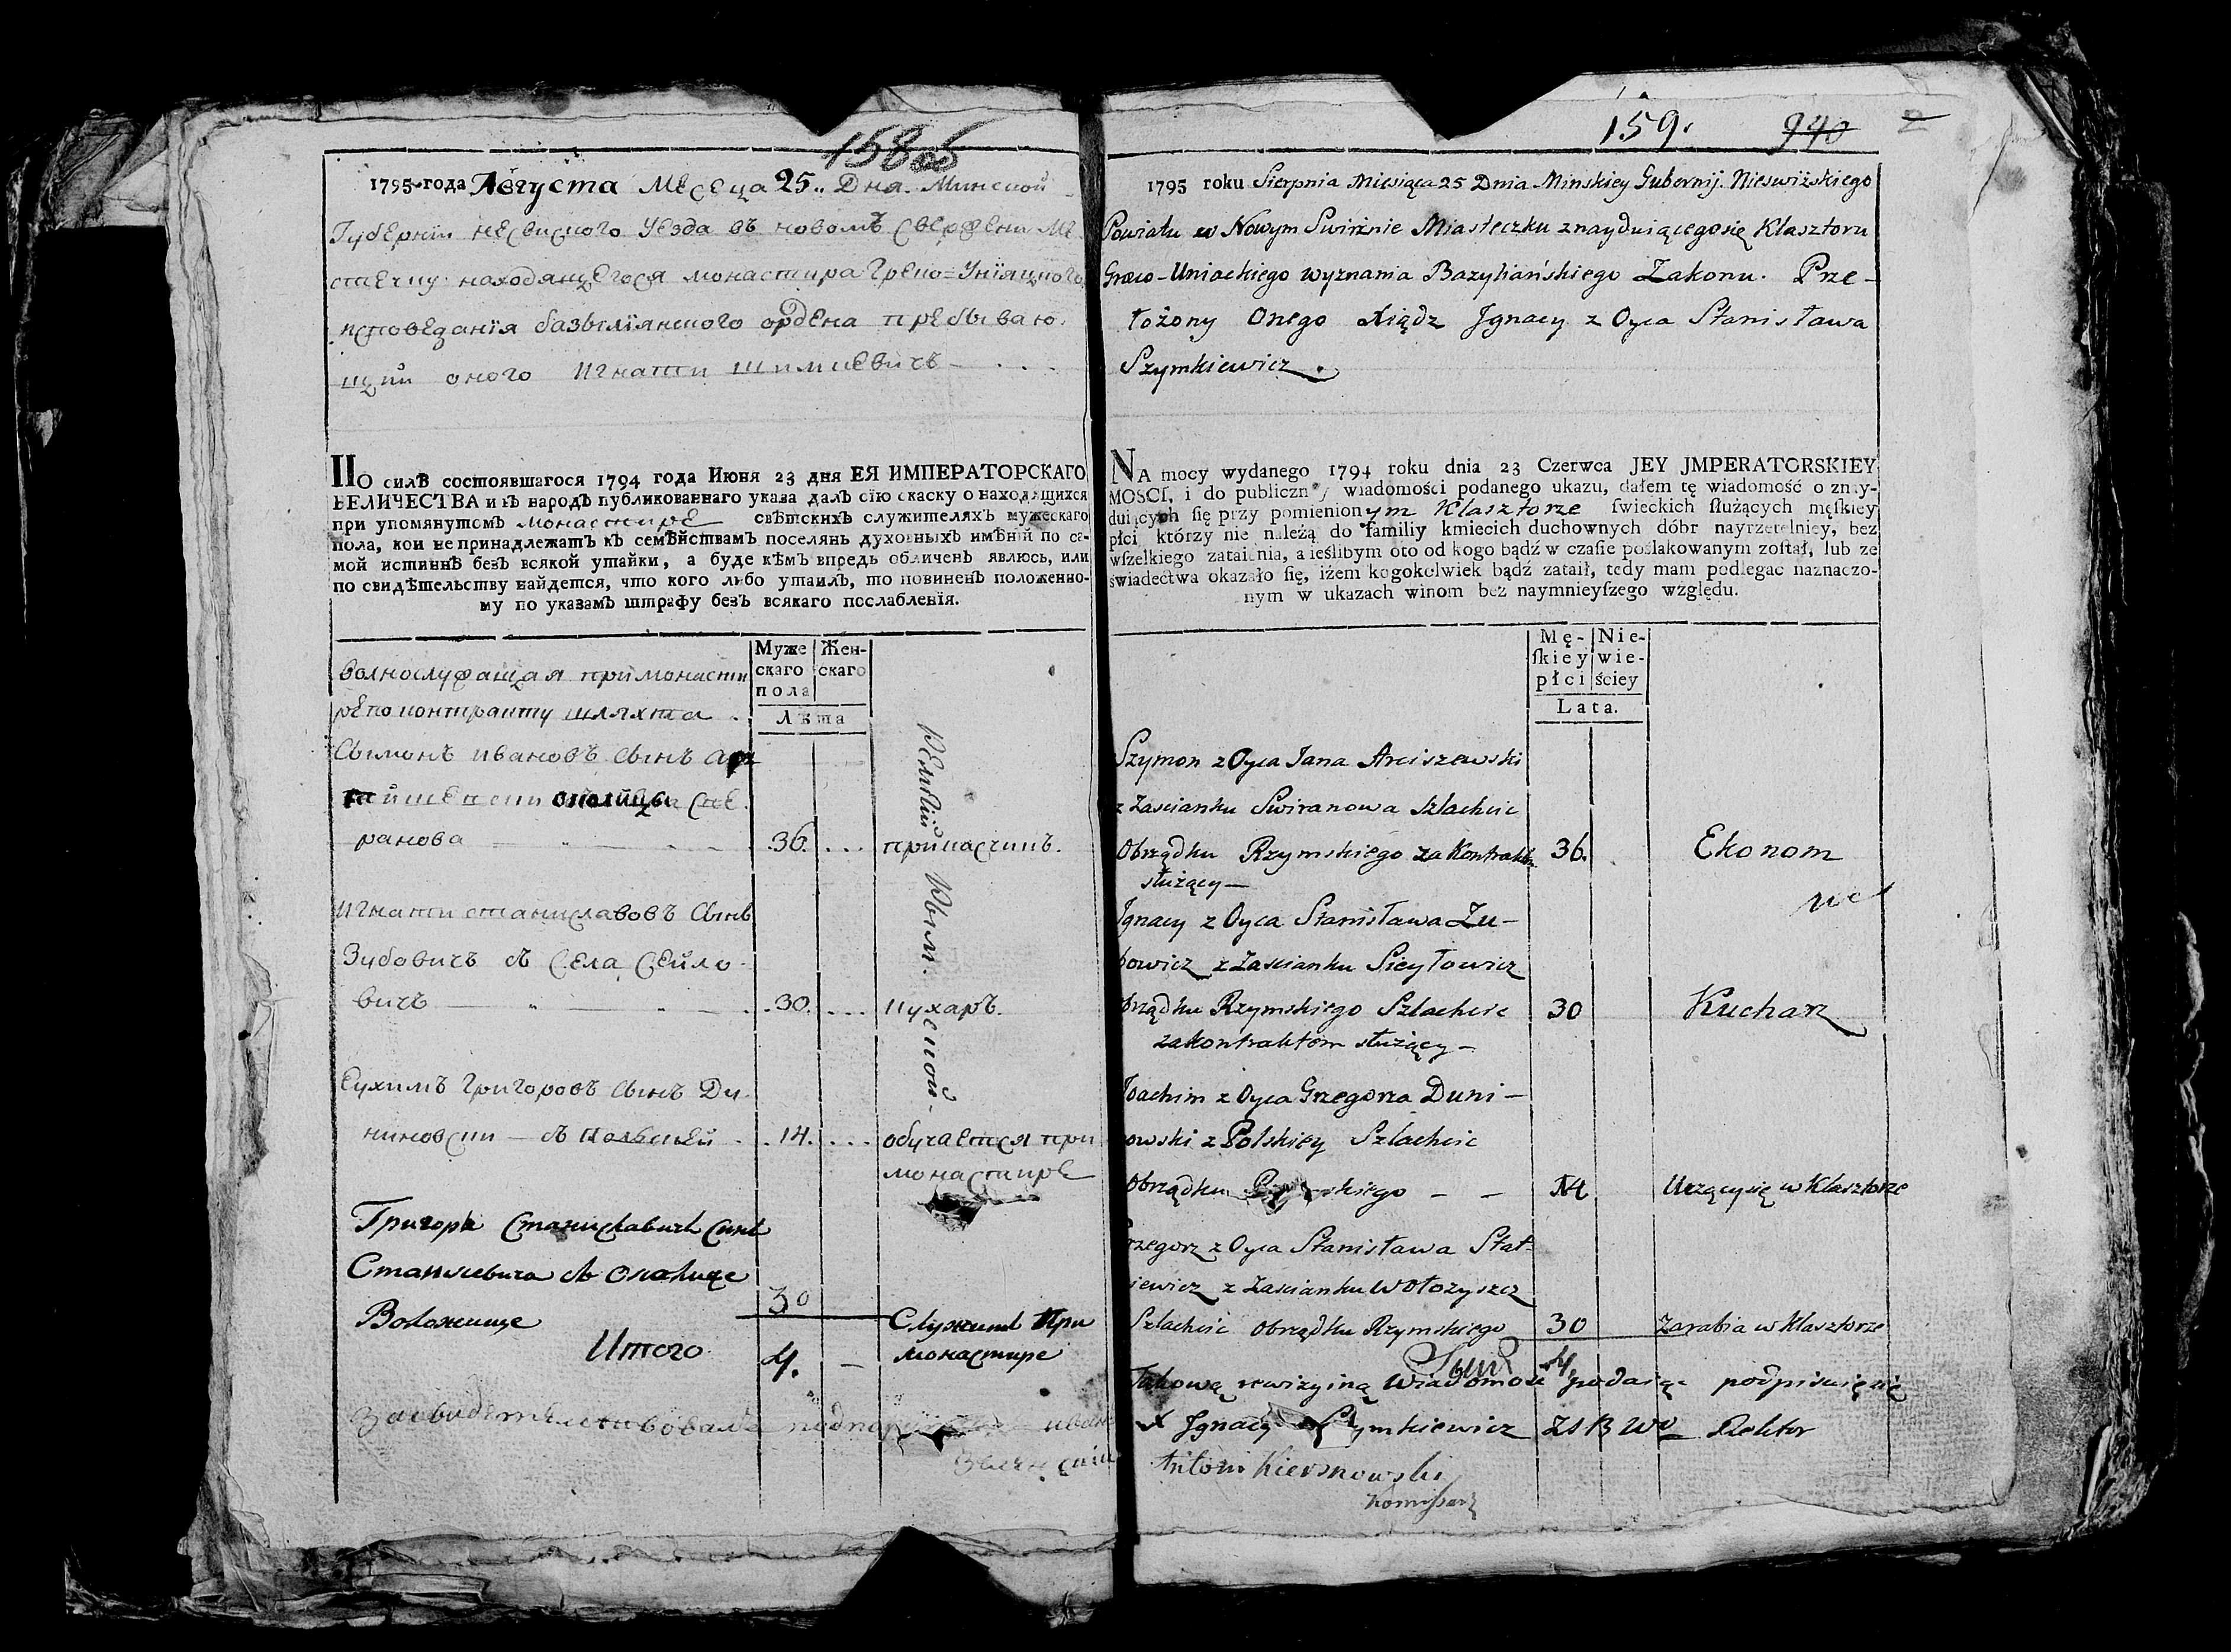 158 об
1795 года Августа Месеца 25. Дня. Минской
Губернїи несвиского Уезда въ новомъ Сверженi Ме-
стечку находящегося монастира Греко-Унїяцкого
исповеданїя базылїянского ордена пребываю-
щий оного Игнати Шимкевичъ
ПО силѣ состоявшагося 1794 года Июня 23 дня ЕЯ ИМПЕРАТОРСКАГО
ВЕЛИЧЕСТВА и въ народъ публикованнаго указа далъ сїю скаску о находящихся
при упомянутомъ монастире свѣтскихъ служителяхъ мужескаго
пола, кои не принадлежатъ къ семѣйствамъ поселянъ духовныхъ имѣнїй по са-
мой истиннѣ безъ всякой утайки, а буде кѣмъ впредь обличенъ явлюсь, или
по свидѣтельству найдется, что кого либо утаилъ, то повиненъ положенно-
му по указамъ штрафу безъ всякаго послабленїя.
Муже Жен-
скаго скаго
пола
Лѣта
волнослужащая при монасти
ре по контракту шляхта
Сымонъ Ивановъ сынъ Арц
околицы Све
ранова 36. прикасчикъ.
Религїи Рымской.
Игнати Станиславовъ сынъ
Зубовичъ съ Села Сейло-
вичъ 30. кухаръ.
Еухимъ Григоровъ сынъ Ду-
никовски съ Полскей 14. обучается при
монастире
Григоръ Станиславичъ синъ
Статкевича съ Околице
Воложище 30 Служитъ При
монастире
Итого 4. —
Засвидетелствовалъ
159.
940
2
1795 roku Sierpnia Miesiąca 25 Dnia Minskiey Gubernij. Nieswiżskiego
Powiatu w Nowym Swirżnie Miasteczku znayduiącegosię Klasztoru
Græco-Uniackiego wyznania Bazyliańskiego Zakonu. Prze-
łożony Onego Xiądz Jgnacy z Oyca Stanisława
Szymkiewicz.
NA mocy wydanego 1794 roku dnia 23 Czerwca JEY JMPERATORSKIEY
MOSCI, i do publiczney wiadomości podanego ukazu, dałem tę wiadomość o znay-
duiących się przy pomienionym Klasztorze swieckich służących męskiey
płci którzy nie należą do familiy kmiecich duchownych dóbr nayrzetelniey, bez
wszelkiego zataienia, a ieślibym oto od kogo bądź w czasie poślakowanym został, lub ze
świadectwa okazało się, iżem kogokolwiek bądź zataił, tedy mam podlegac naznaczo-
nym w ukazach winom bez naymnieyszego względu.
Mę- Nie-
skiey wie-
płci ściey
Lata.
Szymon z Oyca Jana Arciszewski
z Zascianku Swiranowa Szlachcic
Obrządku Rzymskiego za Kontraktem 36. Ekonom
służący —
Jgnacy z Oyca Stanisława Zu-
bowicz z Zascianku Sieyłowicz
brządku Rzymskiego Szlachcic 30 Kucharz
za kontraktem służący —
Joachim z Oyca Grzegorza Duni-
owski z Polskiey Szlachcic
Obrządku Rzymskiego — — 14 Uczącysię w Klasztorze
rzegorz z Oyca Stanisława Stat-
iewicz z Zascianku Wołozyszcz
Szlachcic Obrządku Rzymskiego 30 Zarabia w Klasztorze
4
Takową rewizyiną Wiadomość podaiąc podpisuię się
X Jgnacy Szymkiewicz ZSBWo Rektor
Antoni Kiersnowski
Komissarz